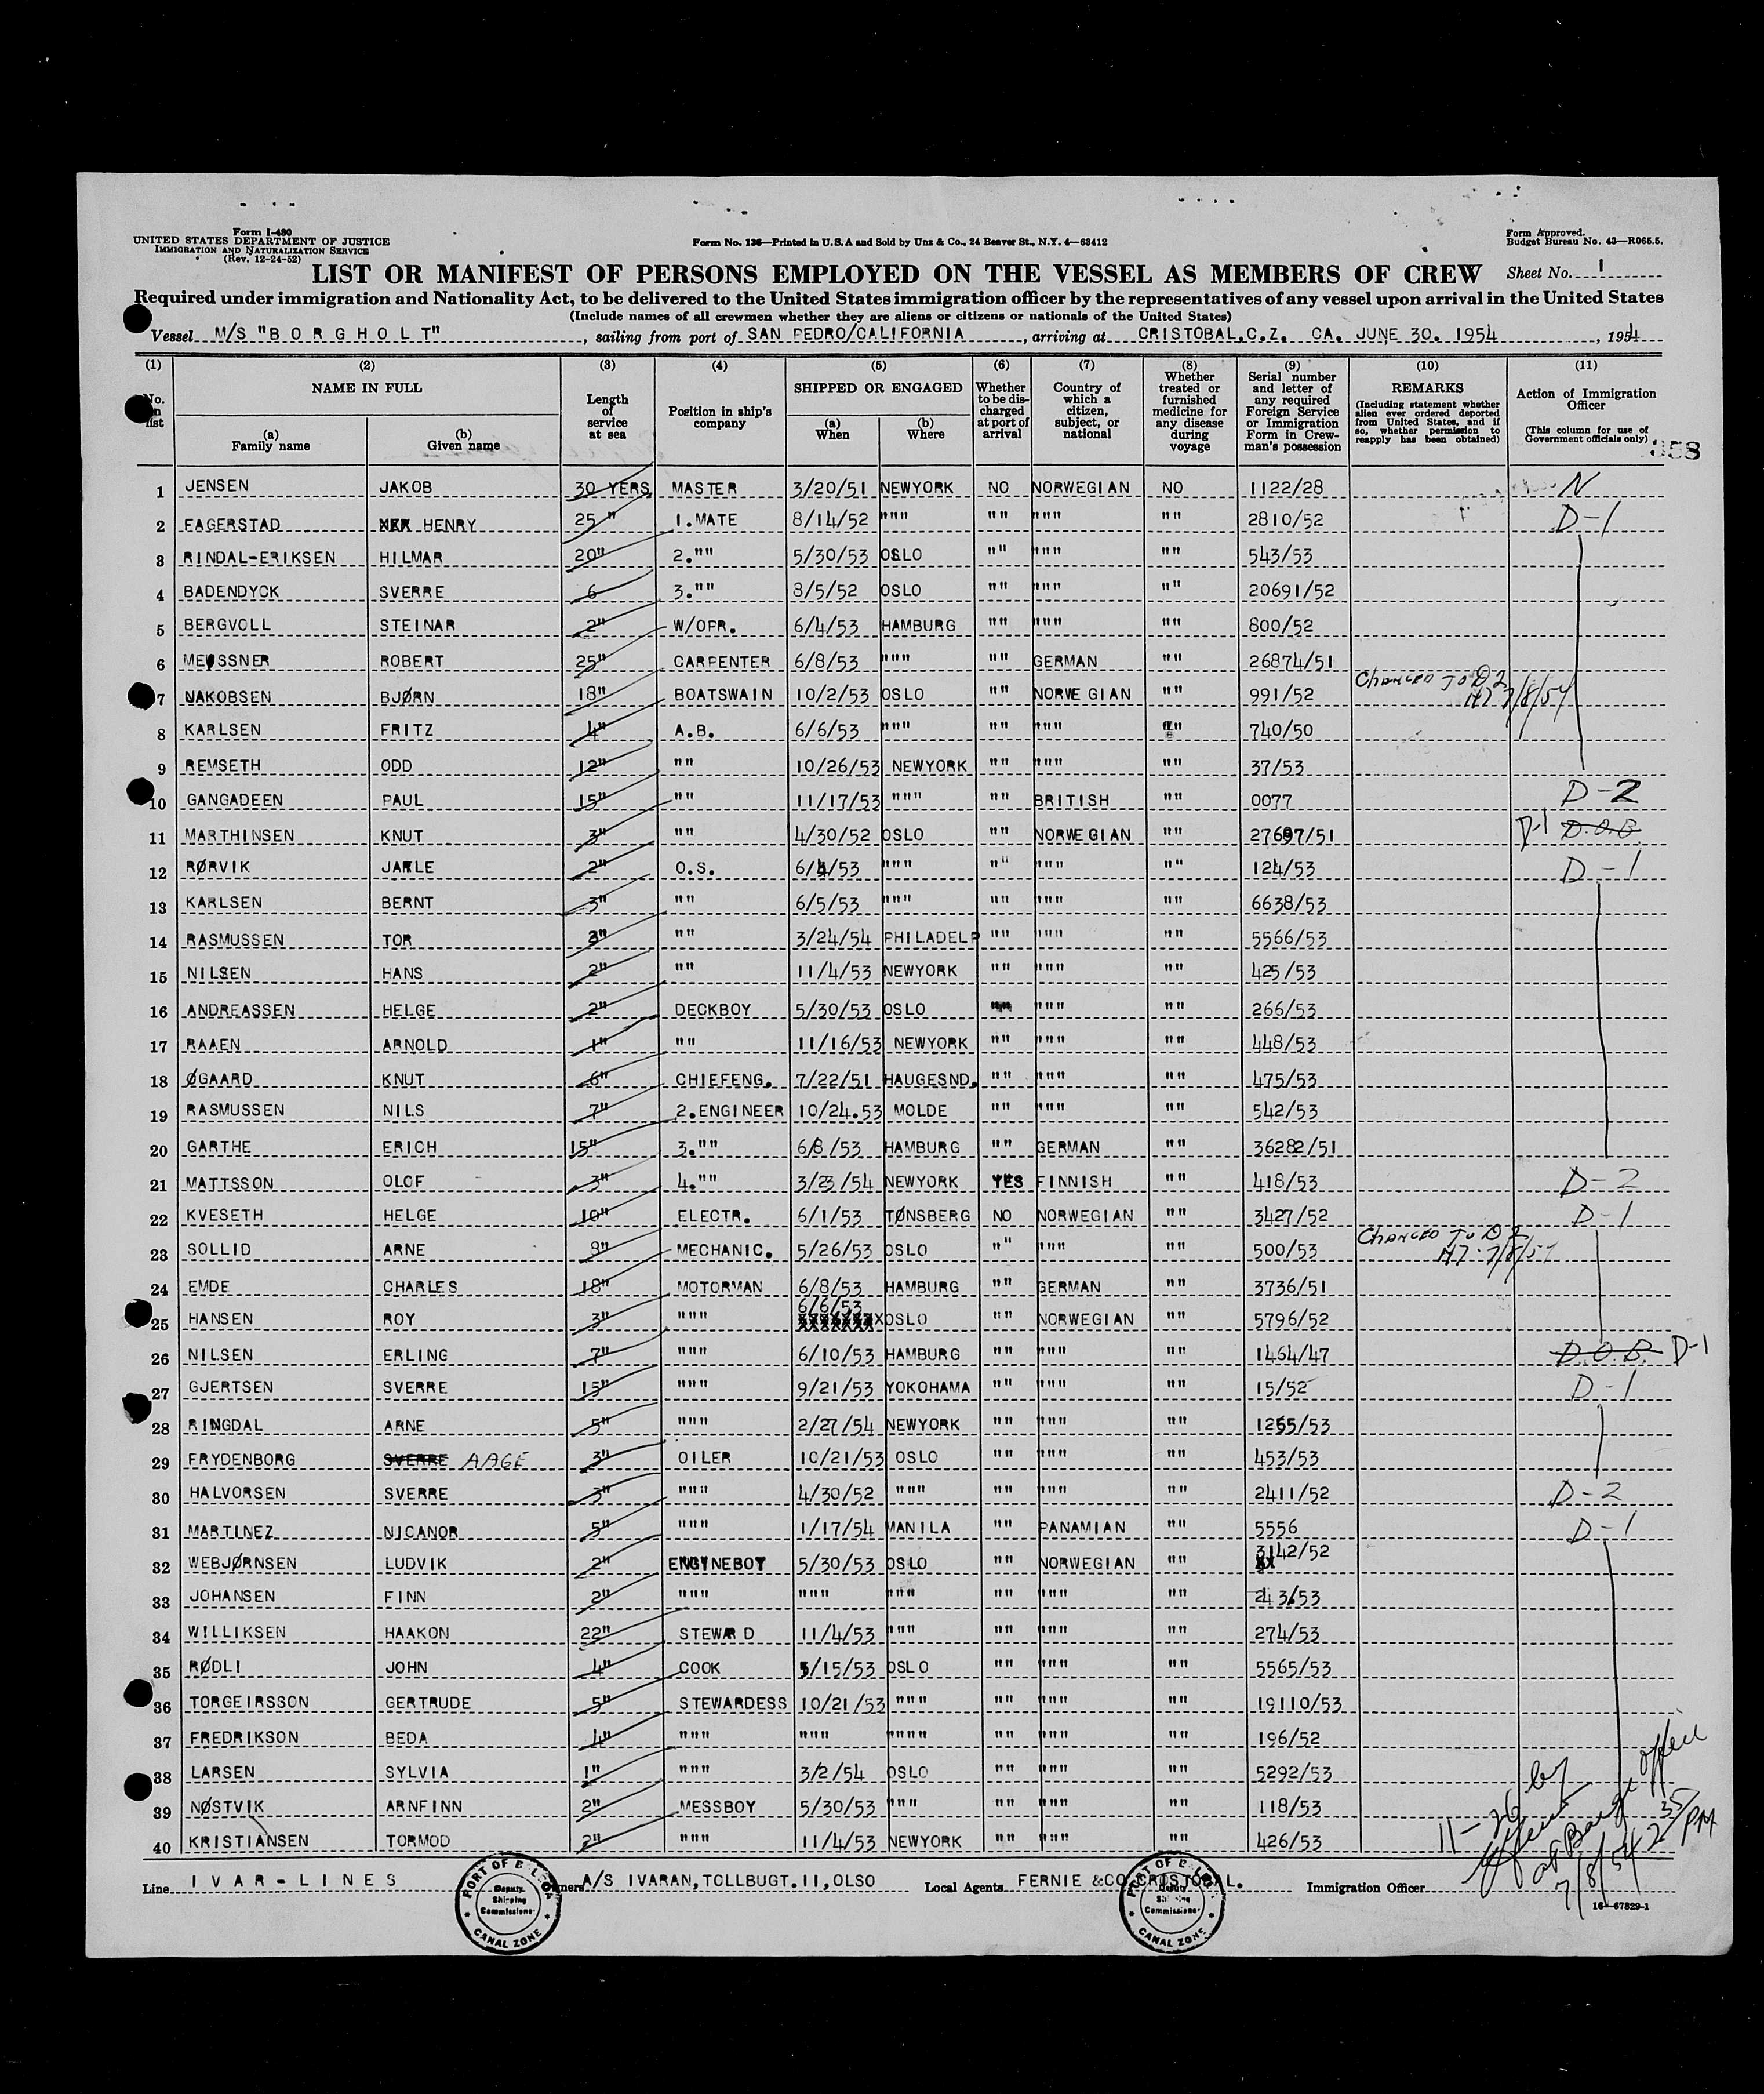 Form I-480
UNITED STATES DEPARTMENT OF JUSTICE
IMMIGRATION AND NATURALIZATION SERVICE
(Rev. 12-24-52)
Form No. 136—Printed in U.S.A and Sold by Unz & Co., 24 Beaver St., N.Y. 4—63412
Form Approved.
Budget Bureau No. 43—R065.5.
LIST OR MANIFEST OF PERSONS EMPLOYED ON THE VESSEL AS MEMBERS OF CREW
Sheet No. 1
Required under immigration and Nationality Act, to be delivered to the United States immigration officer by the representatives of any vessel upon arrival in the United States
(Include names of all crewmen whether they are aliens or citizens or nationals of the United States)
Vessel M/S "BORGHOLT", sailing from port of SAN PEDRO/CALIFORNIA, arriving at CRISTOBAL.C.Z. CA. JUNE 30. 1954, 1954
(1) (2) (3) (4) (5) (6) (7) (8) (9) (10) (11)
No. on list
NAME IN FULL
(a) Family name
(b) Given name
Length of service at sea
Position in ship's company
SHIPPED OR ENGAGED
(a) When
(b) Where
Whether to be discharged at port of arrival
Country of which a citizen, subject, or national
Whether treated or furnished medicine for any disease during voyage
Serial number and letter of any required Foreign Service or Immigration Form in Crewman's possession
REMARKS
(Including statement whether alien ever ordered deported from United States, and if so, whether permission to reapply has been obtained)
Action of Immigration Officer
(This column for use of Government officials only)
358
1 JENSEN JAKOB 30 YERS MASTER 3/20/51 NEWYORK NO NORWEGIAN NO 1122/28 N
2 FAGERSTAD HENRY 25 " 1.MATE 8/14/52 """ "" """ "" 2810/52 D-1
3 RINDAL-ERIKSEN HILMAR 20" 2."" 5/30/53 OSLO "" """ "" 543/53
4 BADENDYCK SVERRE 6 3."" 8/5/52 OSLO "" """ "" 20691/52
5 BERGVOLL STEINAR 2" W/OPR. 6/4/53 HAMBURG "" """ "" 800/52
6 MEUSSNER ROBERT 25" CARPENTER 6/8/53 """ "" GERMAN "" 26874/51
7 JAKOBSEN BJØRN 18" BOATSWAIN 10/2/53 OSLO "" NORWEGIAN "" 991/52 CHANGED TO D2 7/8/54
8 KARLSEN FRITZ 4" A.B. 6/6/53 """ "" """ "" 740/50
9 REMSETH ODD 12" "" 10/26/53 NEWYORK "" """ "" 37/53
10 GANGADEEN PAUL 15" "" 11/17/53 """ "" BRITISH "" 0077 D-2
11 MARTHINSEN KNUT 3" "" 4/30/52 OSLO "" NORWEGIAN "" 27697/51 D-1 D.O.B.
12 RØRVIK JARLE 2" O.S. 6/4/53 """ "" """ "" 124/53 D-1
13 KARLSEN BERNT 3" "" 6/5/53 """ "" """ "" 6638/53
14 RASMUSSEN TOR 3" "" 3/24/54 PHILADELP "" """ "" 5566/53
15 NILSEN HANS 2" "" 11/4/53 NEWYORK "" """ "" 425/53
16 ANDREASSEN HELGE 2" DECKBOY 5/30/53 OSLO "" """ "" 266/53
17 RAAEN ARNOLD 1" "" 11/16/53 NEWYORK "" """ "" 448/53
18 ØGAARD KNUT 6" CHIEFENG. 7/22/51 HAUGESND. "" """ "" 475/53
19 RASMUSSEN NILS 7" 2.ENGINEER 10/24.53 MOLDE "" """ "" 542/53
20 GARTHE ERICH 15" 3."" 6/8/53 HAMBURG "" GERMAN "" 36282/51
21 MATTSSON OLOF 3" 4."" 3/23/54 NEWYORK YES FINNISH "" 418/53 D-2
22 KVESETH HELGE 10" ELECTR. 6/1/53 TØNSBERG NO NORWEGIAN "" 3427/52 D-1
23 SOLLID ARNE 8" MECHANIC. 5/26/53 OSLO "" """ "" 500/53 CHANGED TO D2 7/8/54
24 EMDE CHARLES 18" MOTORMAN 6/8/53 HAMBURG "" GERMAN "" 3736/51
25 HANSEN ROY 3" """ 6/6/53 OSLO "" NORWEGIAN "" 5796/52
26 NILSEN ERLING 7" """ 6/10/53 HAMBURG "" """ "" 1464/47 D.O.B. D-1
27 GJERTSEN SVERRE 15" """ 9/21/53 YOKOHAMA "" """ "" 15/52 D-1
28 RINGDAL ARNE 5" """ 2/27/54 NEWYORK "" """ "" 1255/53
29 FRYDENBORG SVERRE AAGE 3" OILER 10/21/53 OSLO "" """ "" 453/53
30 HALVORSEN SVERRE 3" """ 4/30/52 """ "" """ "" 2411/52 D-2
31 MARTINEZ NICANOR 5" """ 1/17/54 MANILA "" PANAMIAN "" 5556 D-1
32 WEBJØRNSEN LUDVIK 2" ENGYNEBOY 5/30/53 OSLO "" NORWEGIAN "" 3142/52
33 JOHANSEN FINN 2" """ """ """ "" """ "" 243/53
34 WILLIKSEN HAAKON 22" STEWARD 11/4/53 """ "" """ "" 274/53
35 RØDLI JOHN 4" COOK 5/15/53 OSLO "" """ "" 5565/53
36 TORGEIRSSON GERTRUDE 5" STEWARDESS 10/21/53 """ "" """ "" 19110/53
37 FREDRIKSON BEDA 4" """ """ """" "" """ "" 196/52
38 LARSEN SYLVIA 1" """ 3/2/54 OSLO "" """ "" 5292/53
39 NØSTVIK ARNFINN 2" MESSBOY 5/30/53 """ "" """ "" 118/53
40 KRISTIANSEN TORMOD 2" """ 11/4/53 NEWYORK "" """ "" 426/53
11-26 by
at Barge Office
7/8/54 2 35 PM
Line IVAR-LINES Owners A/S IVARAN,TOLLBUGT.11,OLSO Local Agents FERNIE &CO.CRISTOBAL. Immigration Officer
PORT OF BALBOA Deputy Shipping Commissioner CANAL ZONE
PORT OF BALBOA Deputy Shipping Commissioner CANAL ZONE
16—67829-1